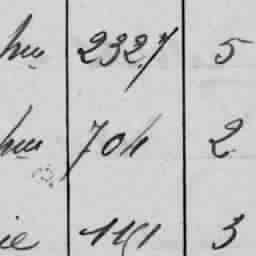 hm 2327 5
hm 704 2
ie 1151 3